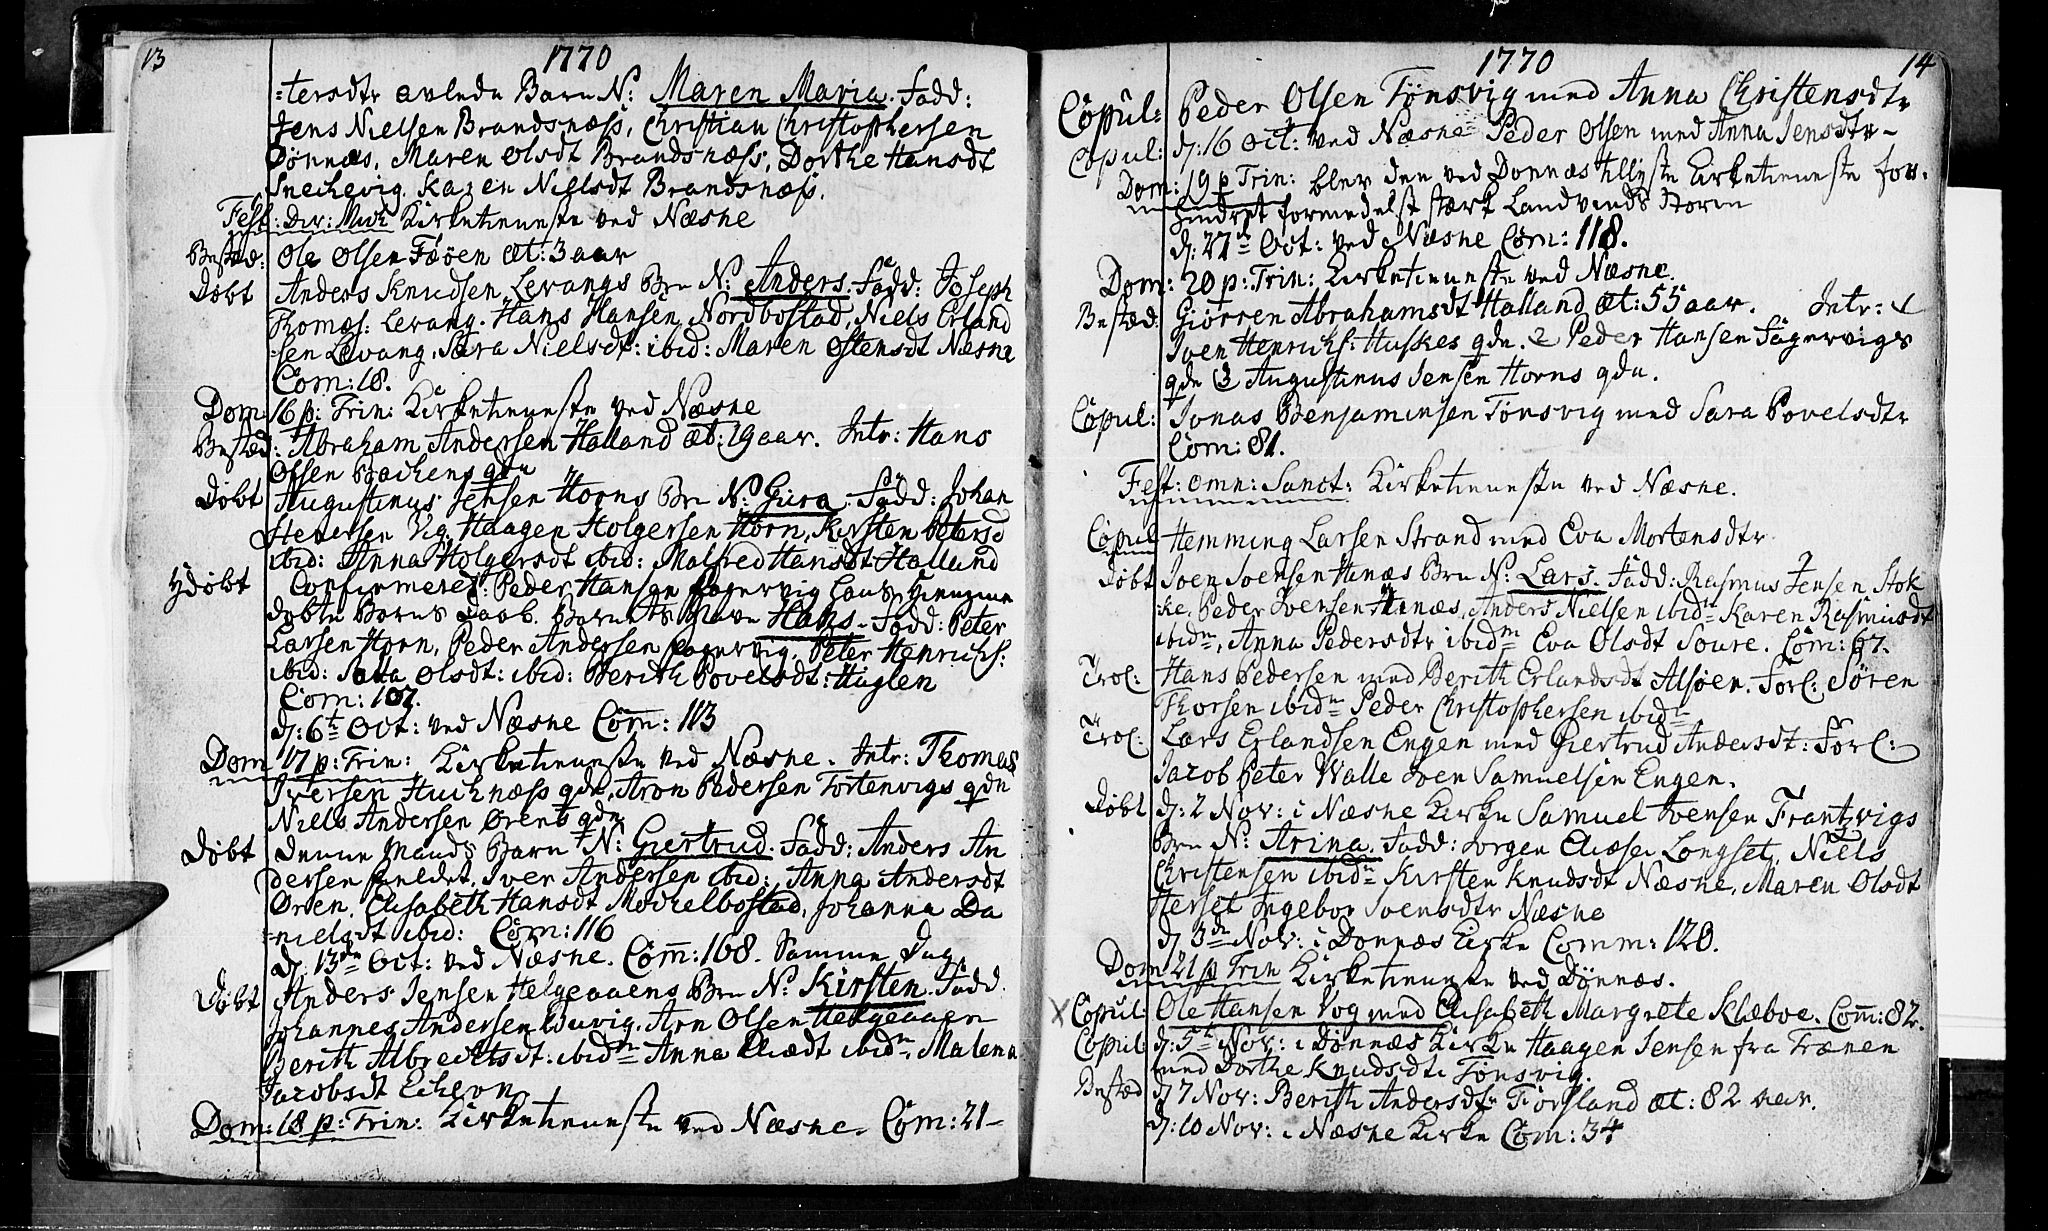 13
1770
:tersdtr avlede Barn N: Maren Maria. Fadd:
Jens Nielsen Brandsnæss, Christian Christophersen
Dönnæs, Maren Olsdt Brandsnæss, Dorthe Hansdt
Snechevig, Karen Nielsdt Brandsnæss.
Fest: Div: Mich Kirketienneste ved Næsne
Bested: Ole Olsen Föen æt: 3 aar
Döbt Anders Knudsen Levangs Brn N: Anders. Fadd: Joseph
Thomæs: Levang. Hans Hansen Nordbostad, Niels Erland
:sen Levang, Sara Nielsdt: ibid: Maren Ostensdt Næsne
Com: 18.
Dom: 16 p: Trin: Kirketienneste ved Næsne
Bested: Abraham Andersen Halland æt: 19 aar. Intr: Hans
Olsen Bachens qde
Döbt Augustinus Jensen Horns Brn N: Gura. Fadd: Johan
Horn, Kirsten Peters
Vig, Haagen Holgersen
ibid: Anna Holgersdt ibid: Malfred Hansdt Halland
Hdöbt Confirmeret Peder Hansen Fagervig Hans hiemme
döbte Barns Daab. Barnets Navn Hans. Fadd: Peter
Larsen Horn, Peder Andersen Fagervig, Peter Henrichs:
ibid: Olsdt: ibid: Berith Povelsdt: Huglen
Com: 107.
d: 6t Oct: ved Næsne Com: 113
Dom 17 p: Trin: Kirketienneste ved Næsne. Intr: Thomas
Iversen Huchnæss qde, Aron Pedersen Tortenvigs qde
Niels Andersen Örens qde
Döbt Denne Mands Barn N: Giertrud. Fadd: Anders An
dersen, Iver Andersen ibid: Anna Andersdt
Ören, Elisabeth Hansdt Mochelbostad, Johanna Da
:nielsdt ibid: Com: 116
d: 13de Oct: ved Næsne. Com: 108. Samme Dag
Döbt Anders Jensen Helgeaaens Brn N: Kirsten. Fadd.
Johannes Andersen, Arn Olsen Helgeaaen
Berith Albrechtsdt: ibidm Anna ibidm, Malena
Jacobsdt
Dom: 18 p: Trin: Kirketienneste ved Næsne. Com: 21-
1770
14
Copul: Peder Olsen Tönsvig med Anna Christensdtr
Copul: d: 16 Oct: ved Næsne Peder Olsen med Anna Jensdtr-
Dom: 19 p Trin: blev den ved Donnæs tillyste Kirketieneste for-
hindret formedelst stærk Landvinds Storm
d: 27de Oct: ved Næsne Com: 118.
Dom: 20 p: Trin: Kirketienneste ved Næsne.
Bested: Giörren Abrahamsdt Halland æt: 55 aar. Intr: 1
Iven Henrichs: Huskes qde. 2 Peder Hansen Fagervigs
qde 3 Augustinus Jensen Horns qde.
Copul: Jonas Benjaminsen Tönsvig med Sara Povelsdtr
Com: 81.
Fest: omn: Sanct: Kirketienneste ved Næsne.
Copul Hemming Larsen Strand med Eva Mortensdtr
Döbt Iven Ivensen Hanæs Brn N: Lars. Fadd: Rasmus Jensen Stok
:ke, Peder Ivensen Hanæs, Anders Nielsen ibidm Karen Rasmusdt
ibidm, Anna Pedersdtr ibidm Eva Olsdt Soure. Com: 67.
Trol: Hans Pedersen med Berith Erlandsdt Alsöen. Forl: Sören
Thorsen ibidm Peder Christophersen ibidm
Trol: Lars Erlandsen Engen med Giertrud Andersdt: Forl:
Jacob Peter Walle Iven Samuelsen Engen.
Döbt d: 2 Nov: i Næsne Kirke Samuel Ivensen Frantzvigs
Brn N: Arina. Fadd: Jorgen Longset, Niels
Christensen ibidm Kirsten Knudsdt Næsne, Maren Olsdt
Herset Ingebor Ivensdtr Næsne
d: 3de Nov: i Donnæs Kirke Comm: 120.
Dom 21 p Trin Kirketienneste ved Dönnæs.
X Copul: Ole Hansen Vog med Elisabeth Margrete Klæboe. Com: 82.
Copul d: 5t Nov: i Dönnæs Kirke Haagen Jensen fra Trænen
med Dorthe Knudsdt: Tönsvig.
Bested d 7 Nov: Berith Andersdtr Fiörsland æt: 82 aar.
d: 10 Nov: i Næsne Kirke Com: 34